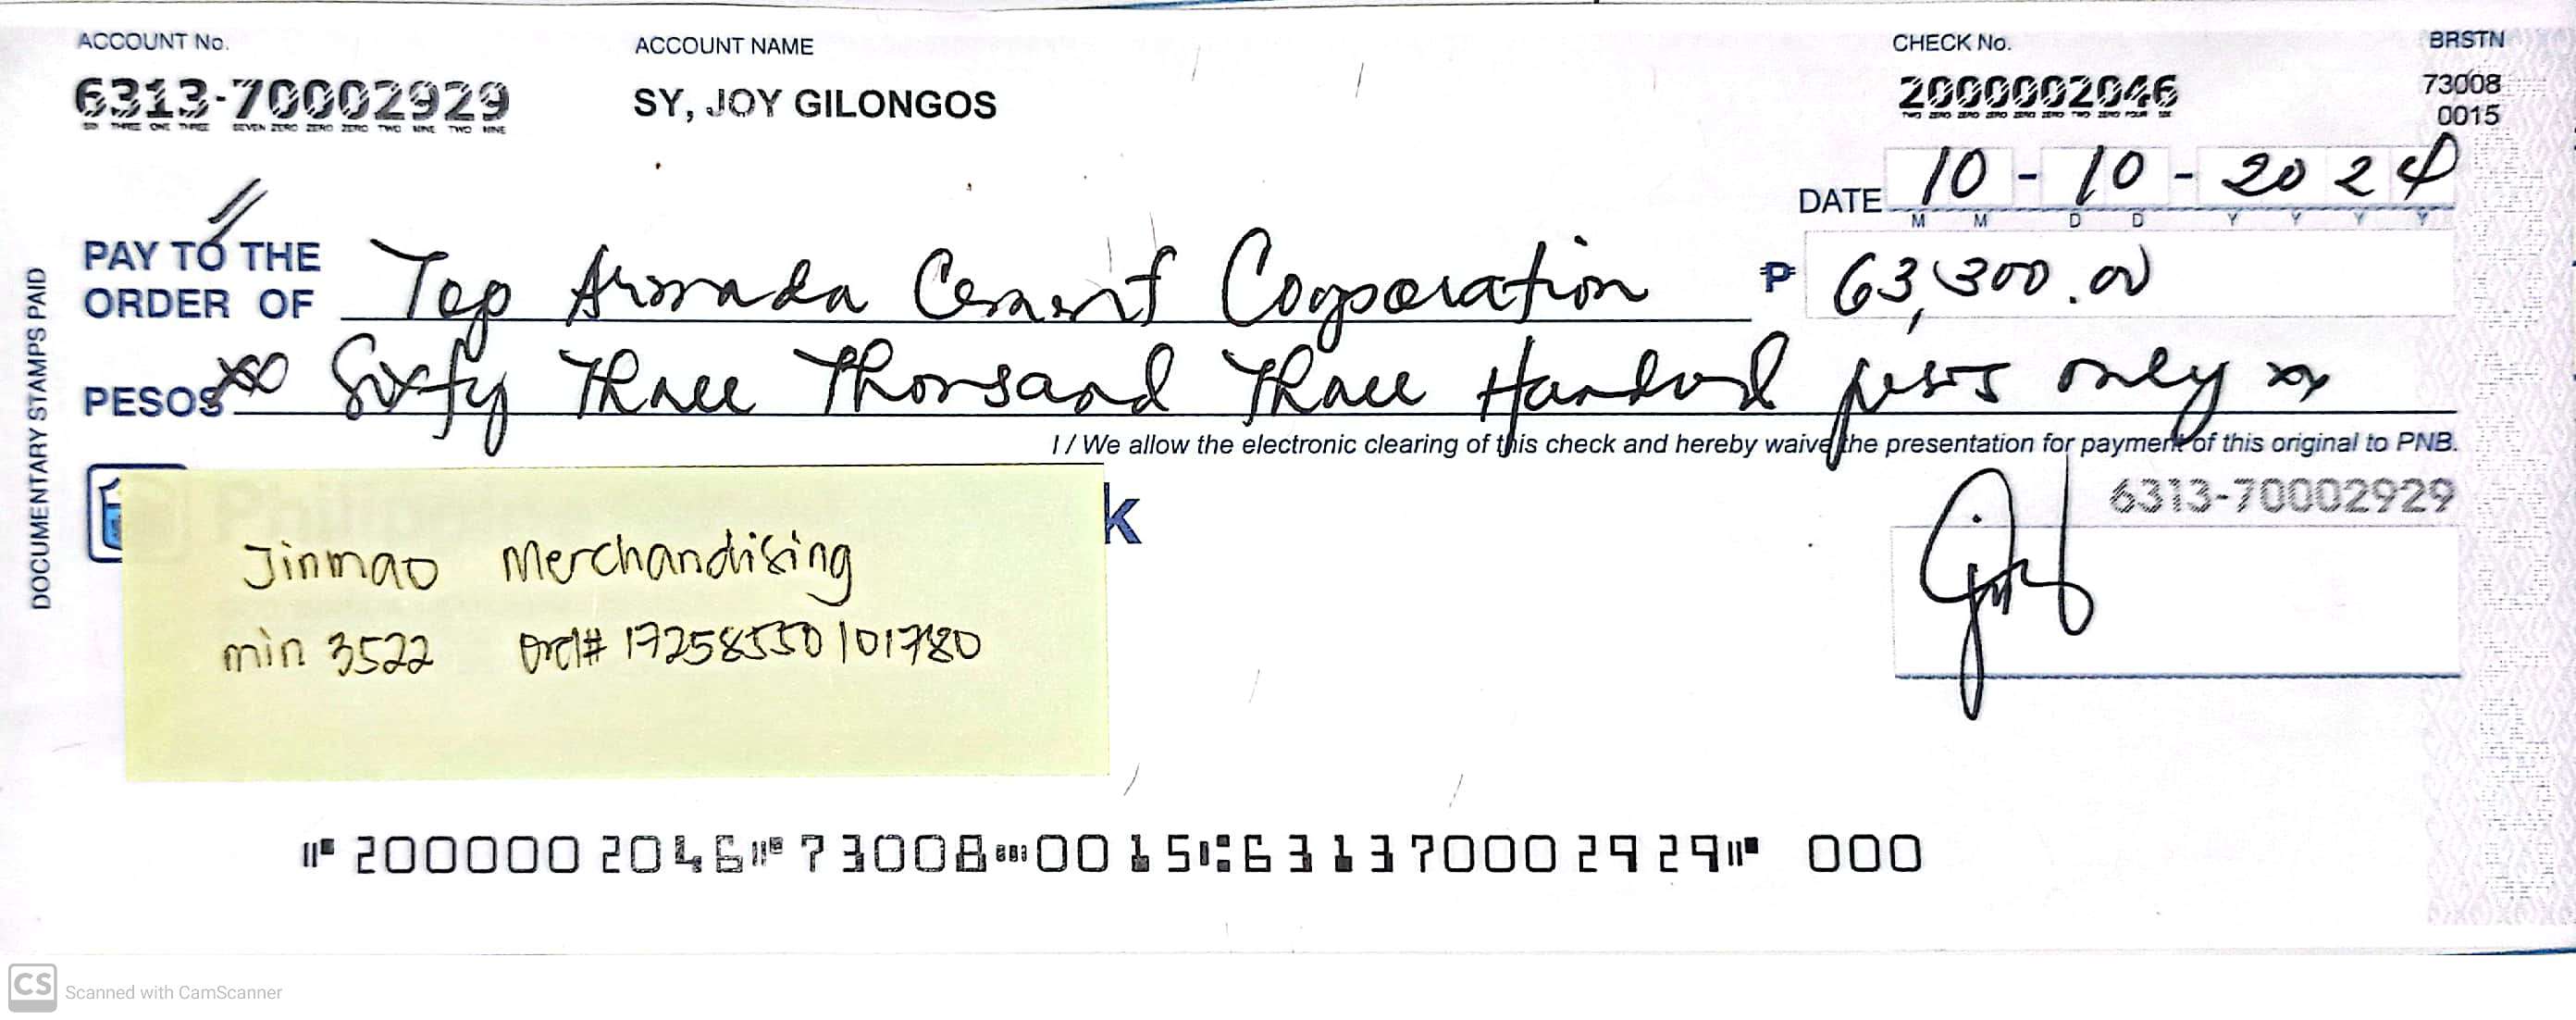 ACCOUNT No.
6313-70002929
SIX THREE ONE THREE SEVEN ZERO ZERO ZERO TWO NINE TWO NINE
ACCOUNT NAME
SY, JOY GILONGOS
CHECK No.
2000002046
TWO ZERO ZERO ZERO ZERO ZERO TWO ZERO FOUR SIX
BRSTN
73008
0015
DATE 10-10-2024
M M D D Y Y Y Y
PAY TO THE
ORDER OF Top Armada Cement Corporation ₱ 63,300.00
PESOS Sixty Three Thousand Three Hundred pesos only xx
I / We allow the electronic clearing of this check and hereby waive the presentation for payment of this original to PNB.
DOCUMENTARY STAMPS PAID
6313-70002929
k
Jinmao Merchandising
min 3522 Ord# 17258550101780
2000002046 73008 0015 631370002929 000
CS Scanned with CamScanner